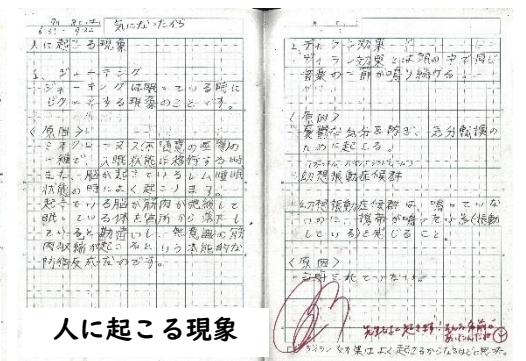 気になったから
人に起こる現象
1. ジャーキング
ジャーキングは眠っている時に
ビクッとする現象のことです。
〈原因〉
ミオクローヌス(不随意の運動)の
一種で、入眠状態に移行する時
また、脳が起きているレム睡眠
状態の時によく起こります。
起きている脳が筋肉が弛緩して
眠っている体を高所から落下し
ていると勘違いし、無意識の筋
肉収縮が起こるという本能的な
防衛反応なのです。
2. ディラン効果
ディラン効果とは頭の中で同じ
音楽の一部が鳴り続ける
〈原因〉
憂鬱な気分を防ぎ、気分転換の
ために起こる。
幻想振動症候群
幻想振動症候群は、鳴っていな
いのに、携帯が鳴ったよう(振動
している)を感じること。
〈原因〉
証明されてっない。
人に起こる現象